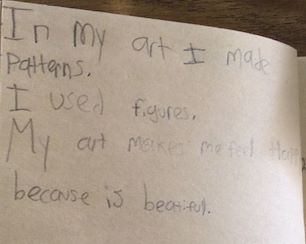 In my art I made
Patterns.
I used figures.
My art makes me feel
because is beatiful.